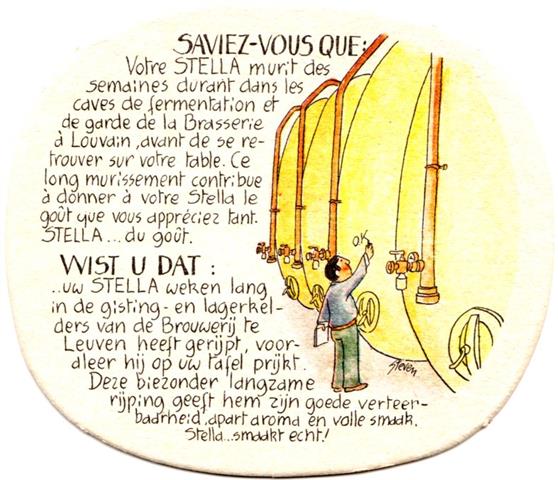 SAVIEZ-VOUS QUE:
Votre STELLA murit des
semaines durant dans les
caves de fermentation et
de garde de la Brasserie
à Louvain, avant de se re-
trouver sur votre table. Ce
long murissement contribue
à donner à votre Stella le
goût que vous appréciez tant.
STELLA... du goût.
O.K
WIST U DAT :
..uw STELLA weken lang
in de gisting- en lagerkel-
ders van de Brouwerij te
Leuven heeft gerijpt, voor-
aleer hij op uw tafel prijkt.
Deze biezonder langzame
rijping geeft hem zijn goede verteer-
baarheid, apart aroma en volle smaak.
Stella...smaakt echt!
Steven